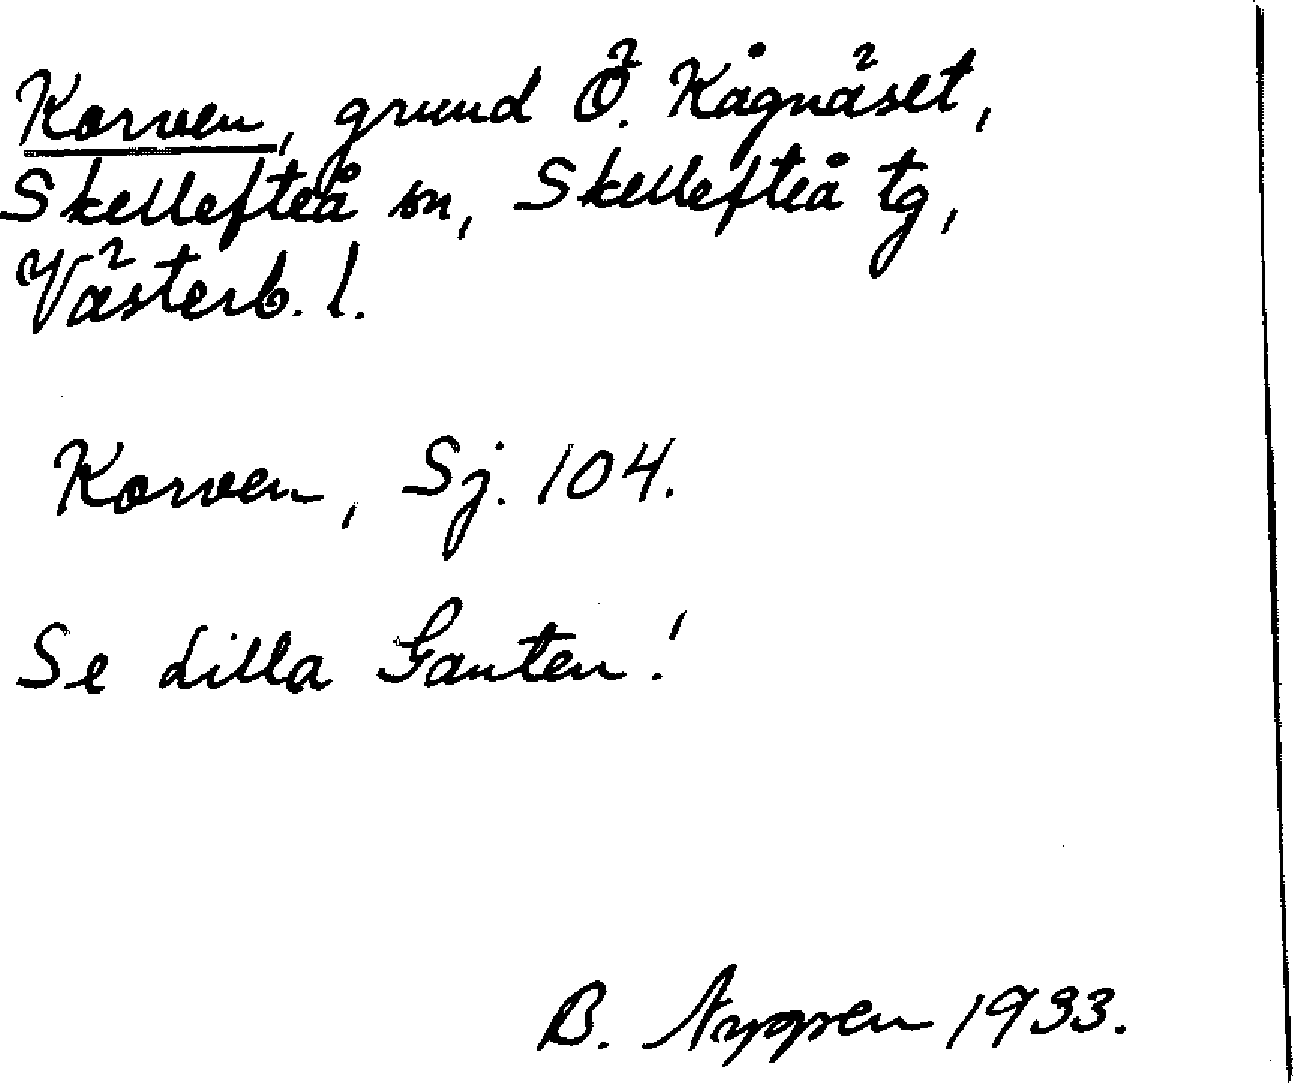 Korven, grund Ö. Kågnäset,
Skellefteå sn, Skellefteå tg,
Västerb. l.
Korven, Sj. 104.
Se Lilla Ganten!
B. Nygren 1933.